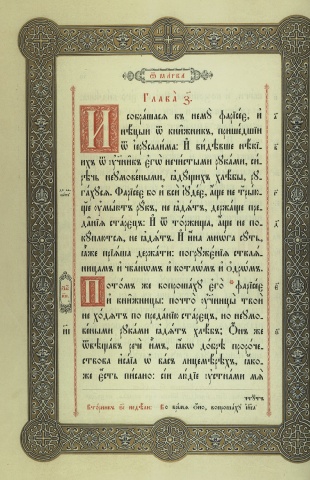 Ѿ марка
Глава̀ з҃.
И собра́шасѧ къ немꙋ̀ фарїсе́є, и҆
нѣ́цыи ѿ кни́жникъ, прише́дшїи
ѿ і҆ерꙋсали́ма: И҆ ви́дѣвше нѣ́кі-
ихъ ѿ ᲂу҆чени̑къ є҆гѡ̀ нечи́стыми рꙋка́ми, си́-
рѣчь неꙋмове́нными, ꙗ҆дꙋ́щихъ хлѣ́бы, рꙋ-
га́хꙋсѧ. Фарїсе́є бо и҆ всѝ і҆ꙋде́є, а҆́ще не трыю́-
ще ᲂу҆мы́ютъ рꙋ́къ, не ꙗ҆дѧ́тъ, держа́ще пре-
да̑нїѧ ста́рєцъ: И҆ ѿ то́ржища, а҆́ще не по-
кꙋ́плютсѧ, не ꙗ҆дѧ́тъ. И҆ и҆́на мнѡ́га сꙋ́ть,
ꙗ҆̀же прїѧ́ша держа́ти: погрꙋжє́нїѧ стклѧ́-
ницамъ и҆ чва́нѡмъ и҆ котлѡ́мъ и҆ ѻ҆дрѡ́мъ.
Пото́мъ же вопроша́хꙋ є҆го̀ фарїсе́є
и҆ кни́жницы: почто̀ ᲂу҆ченицы̀ твоѝ
не хо́дѧтъ по преда́нїю ста́рєцъ, но неꙋмо-
ве́ными рꙋка́ми ꙗ҆дѧ́тъ хлѣ́бъ; Ѻ҆́нъ же
ѿвѣща́въ речѐ и҆̀мъ, ꙗ҆́кѡ до́брѣ проро́че-
ствова и҆са́їа ѡ҆ ва́съ лицемѣ́рѣхъ, ꙗ҆́ко-
же є҆́сть пи́сано: сі́и лю́дїе ᲂу҆стна́ми мѧ̀
чтꙋ́тъ
Во вре́мѧ ѻ҆́но, вопроша́хꙋ і҆и҃са